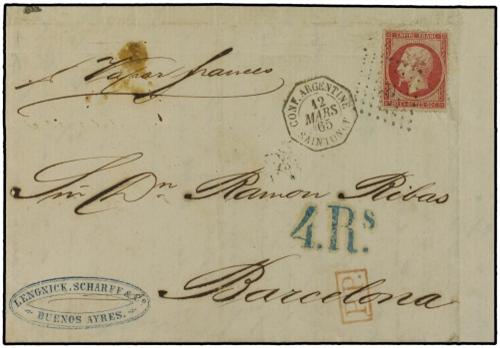 p. Vapor frances
EMPIRE FRANC.
CONF. ARGENTINE
12
MARS
65
SAINTONGE
Sr. Dn. Ramon Ribas
4.Rs
Barcelona
P.P.
LENGNICK, SCHARFF & Co
BUENOS AYRES.